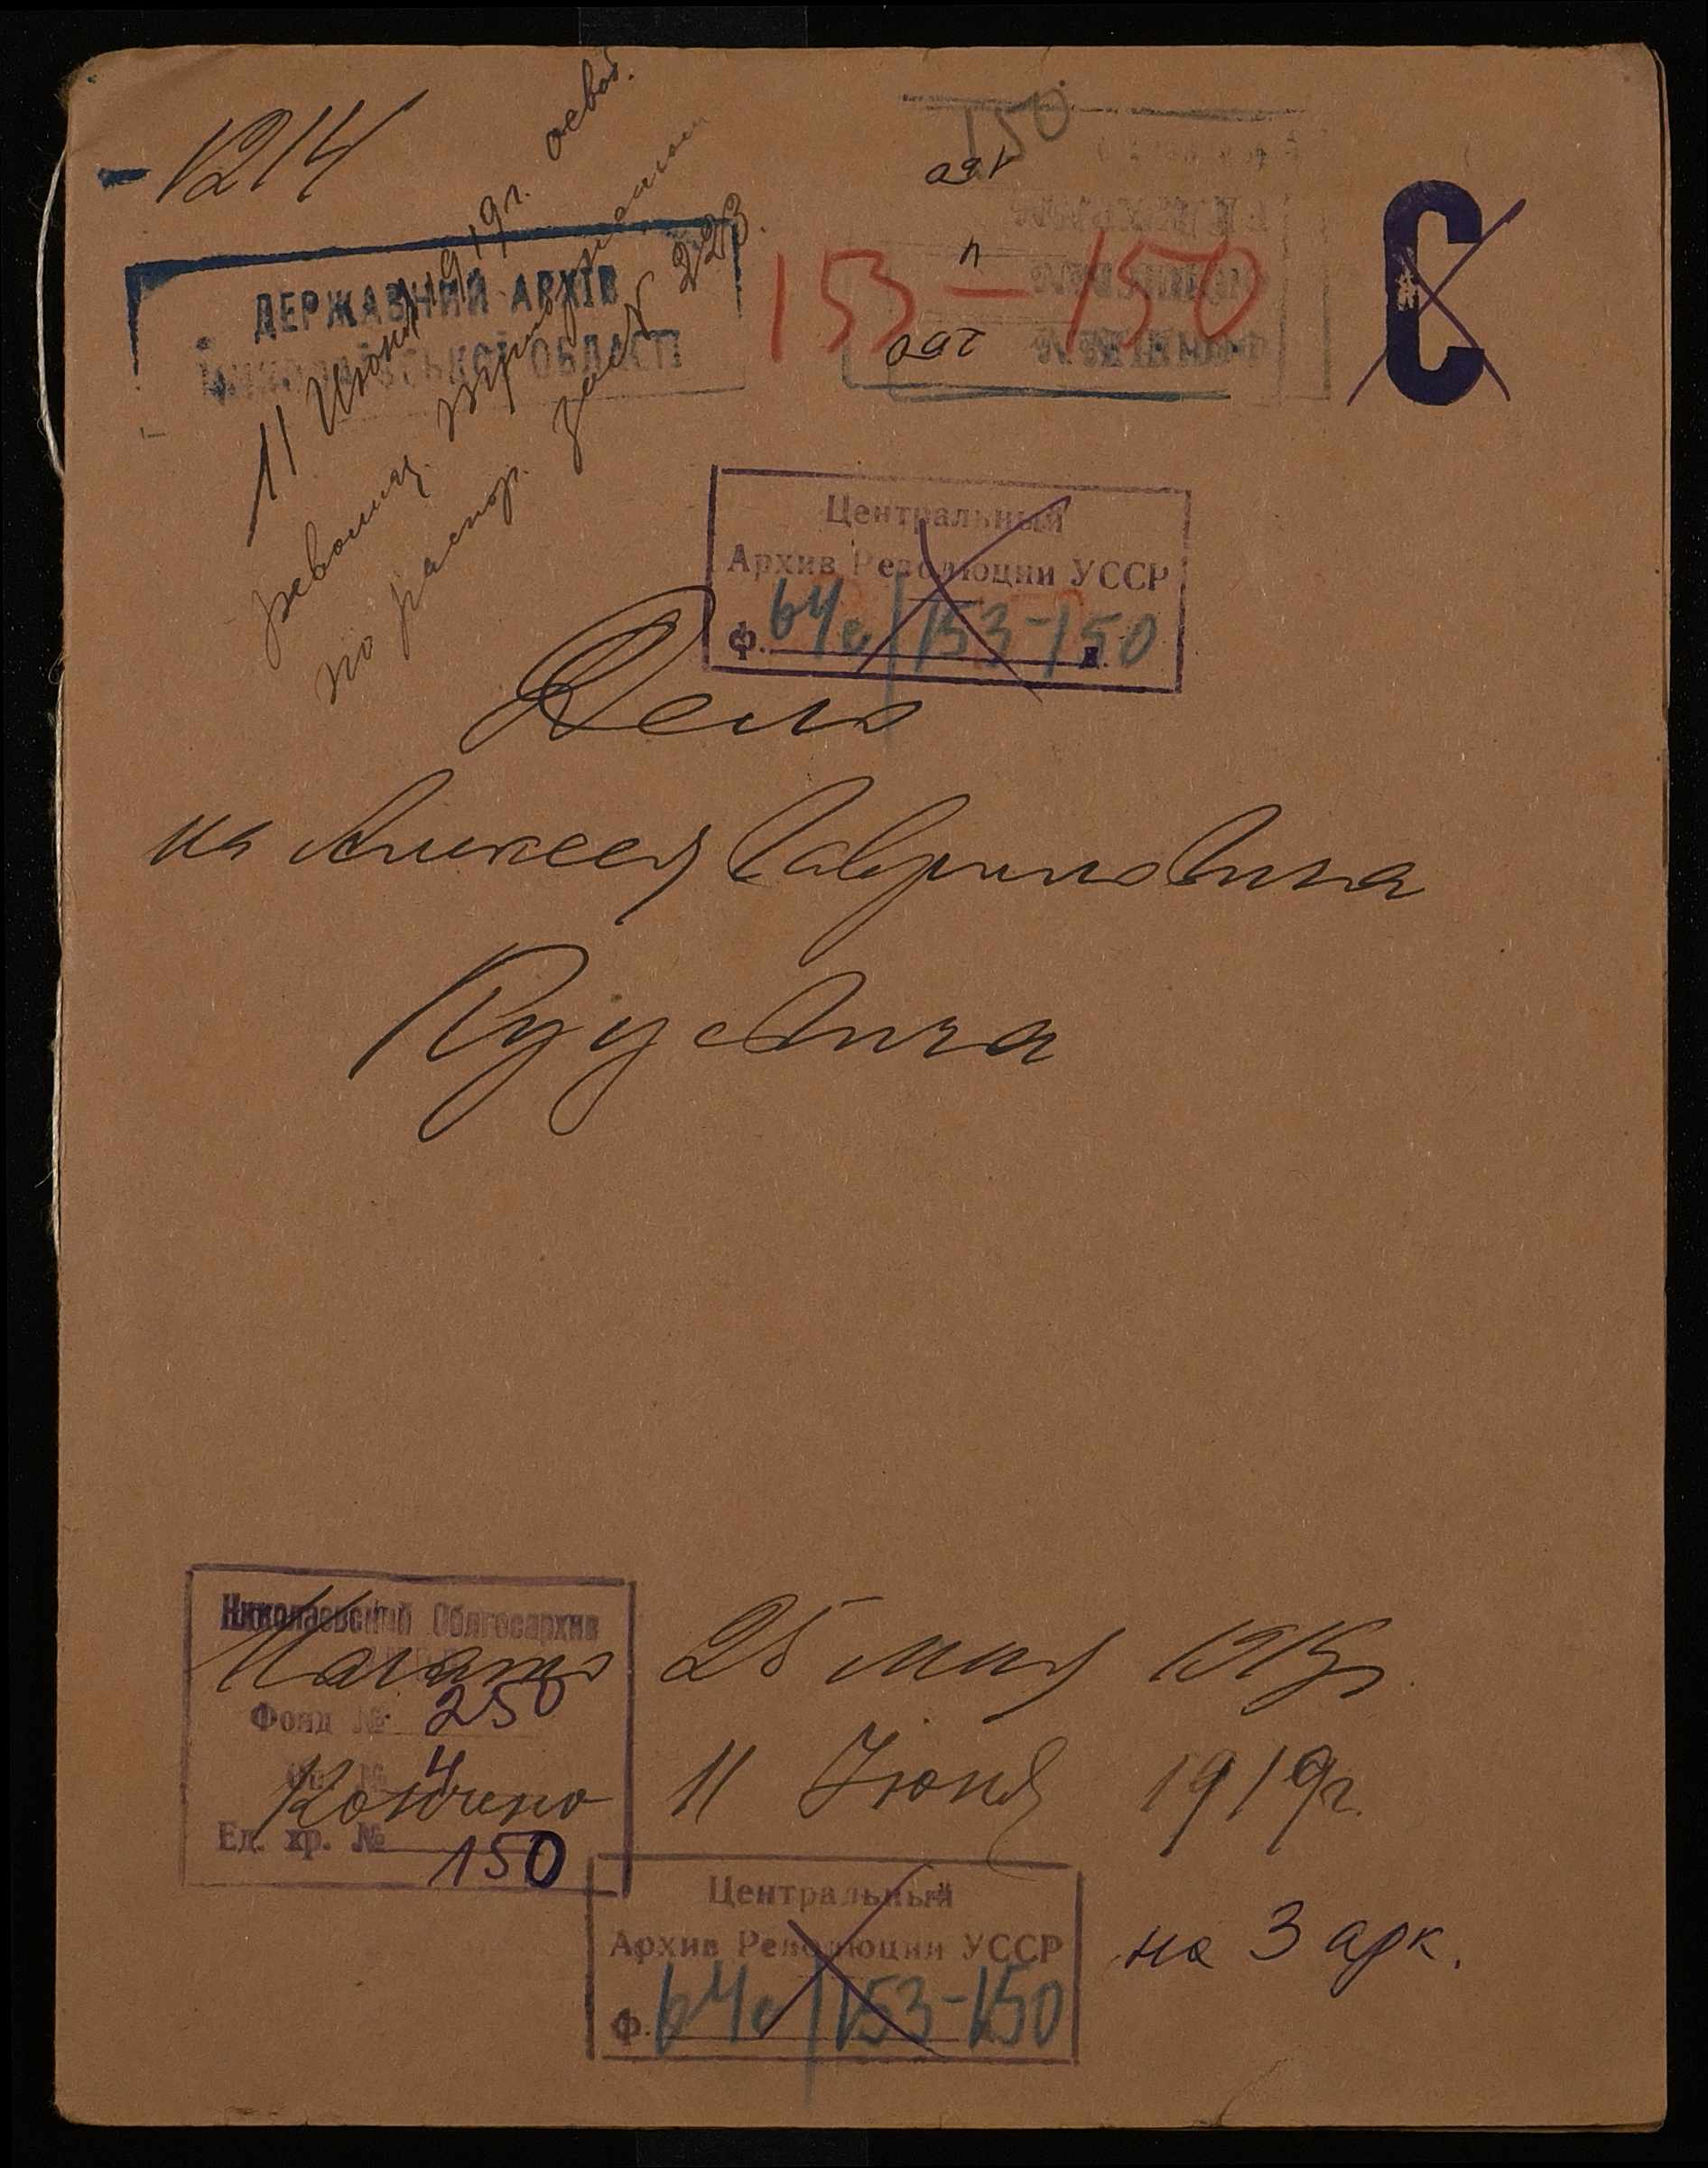 1214
11 Июня 1919г. освоб.
революц. трибуналом
по распор. засед 223.
ДЕРЖАВНИЙ АРХІВ
МИКОЛАЇВСЬКОЇ ОБЛАСТІ
150
153-150
250
4
150
С
Центральный
Архив Революции УССР
ф. 64с/153-150
Дело
на Алексея Гавриловича
Начато 25 мая 1919г.
Кончено 11 Июня 1919г.
Николаевский Облгосархив
Фонд № 250
Оп. № 4
Ед. хр. № 150
на 3 арк.
Центральный
Архив Революции УССР
Ф. 64с/153-150